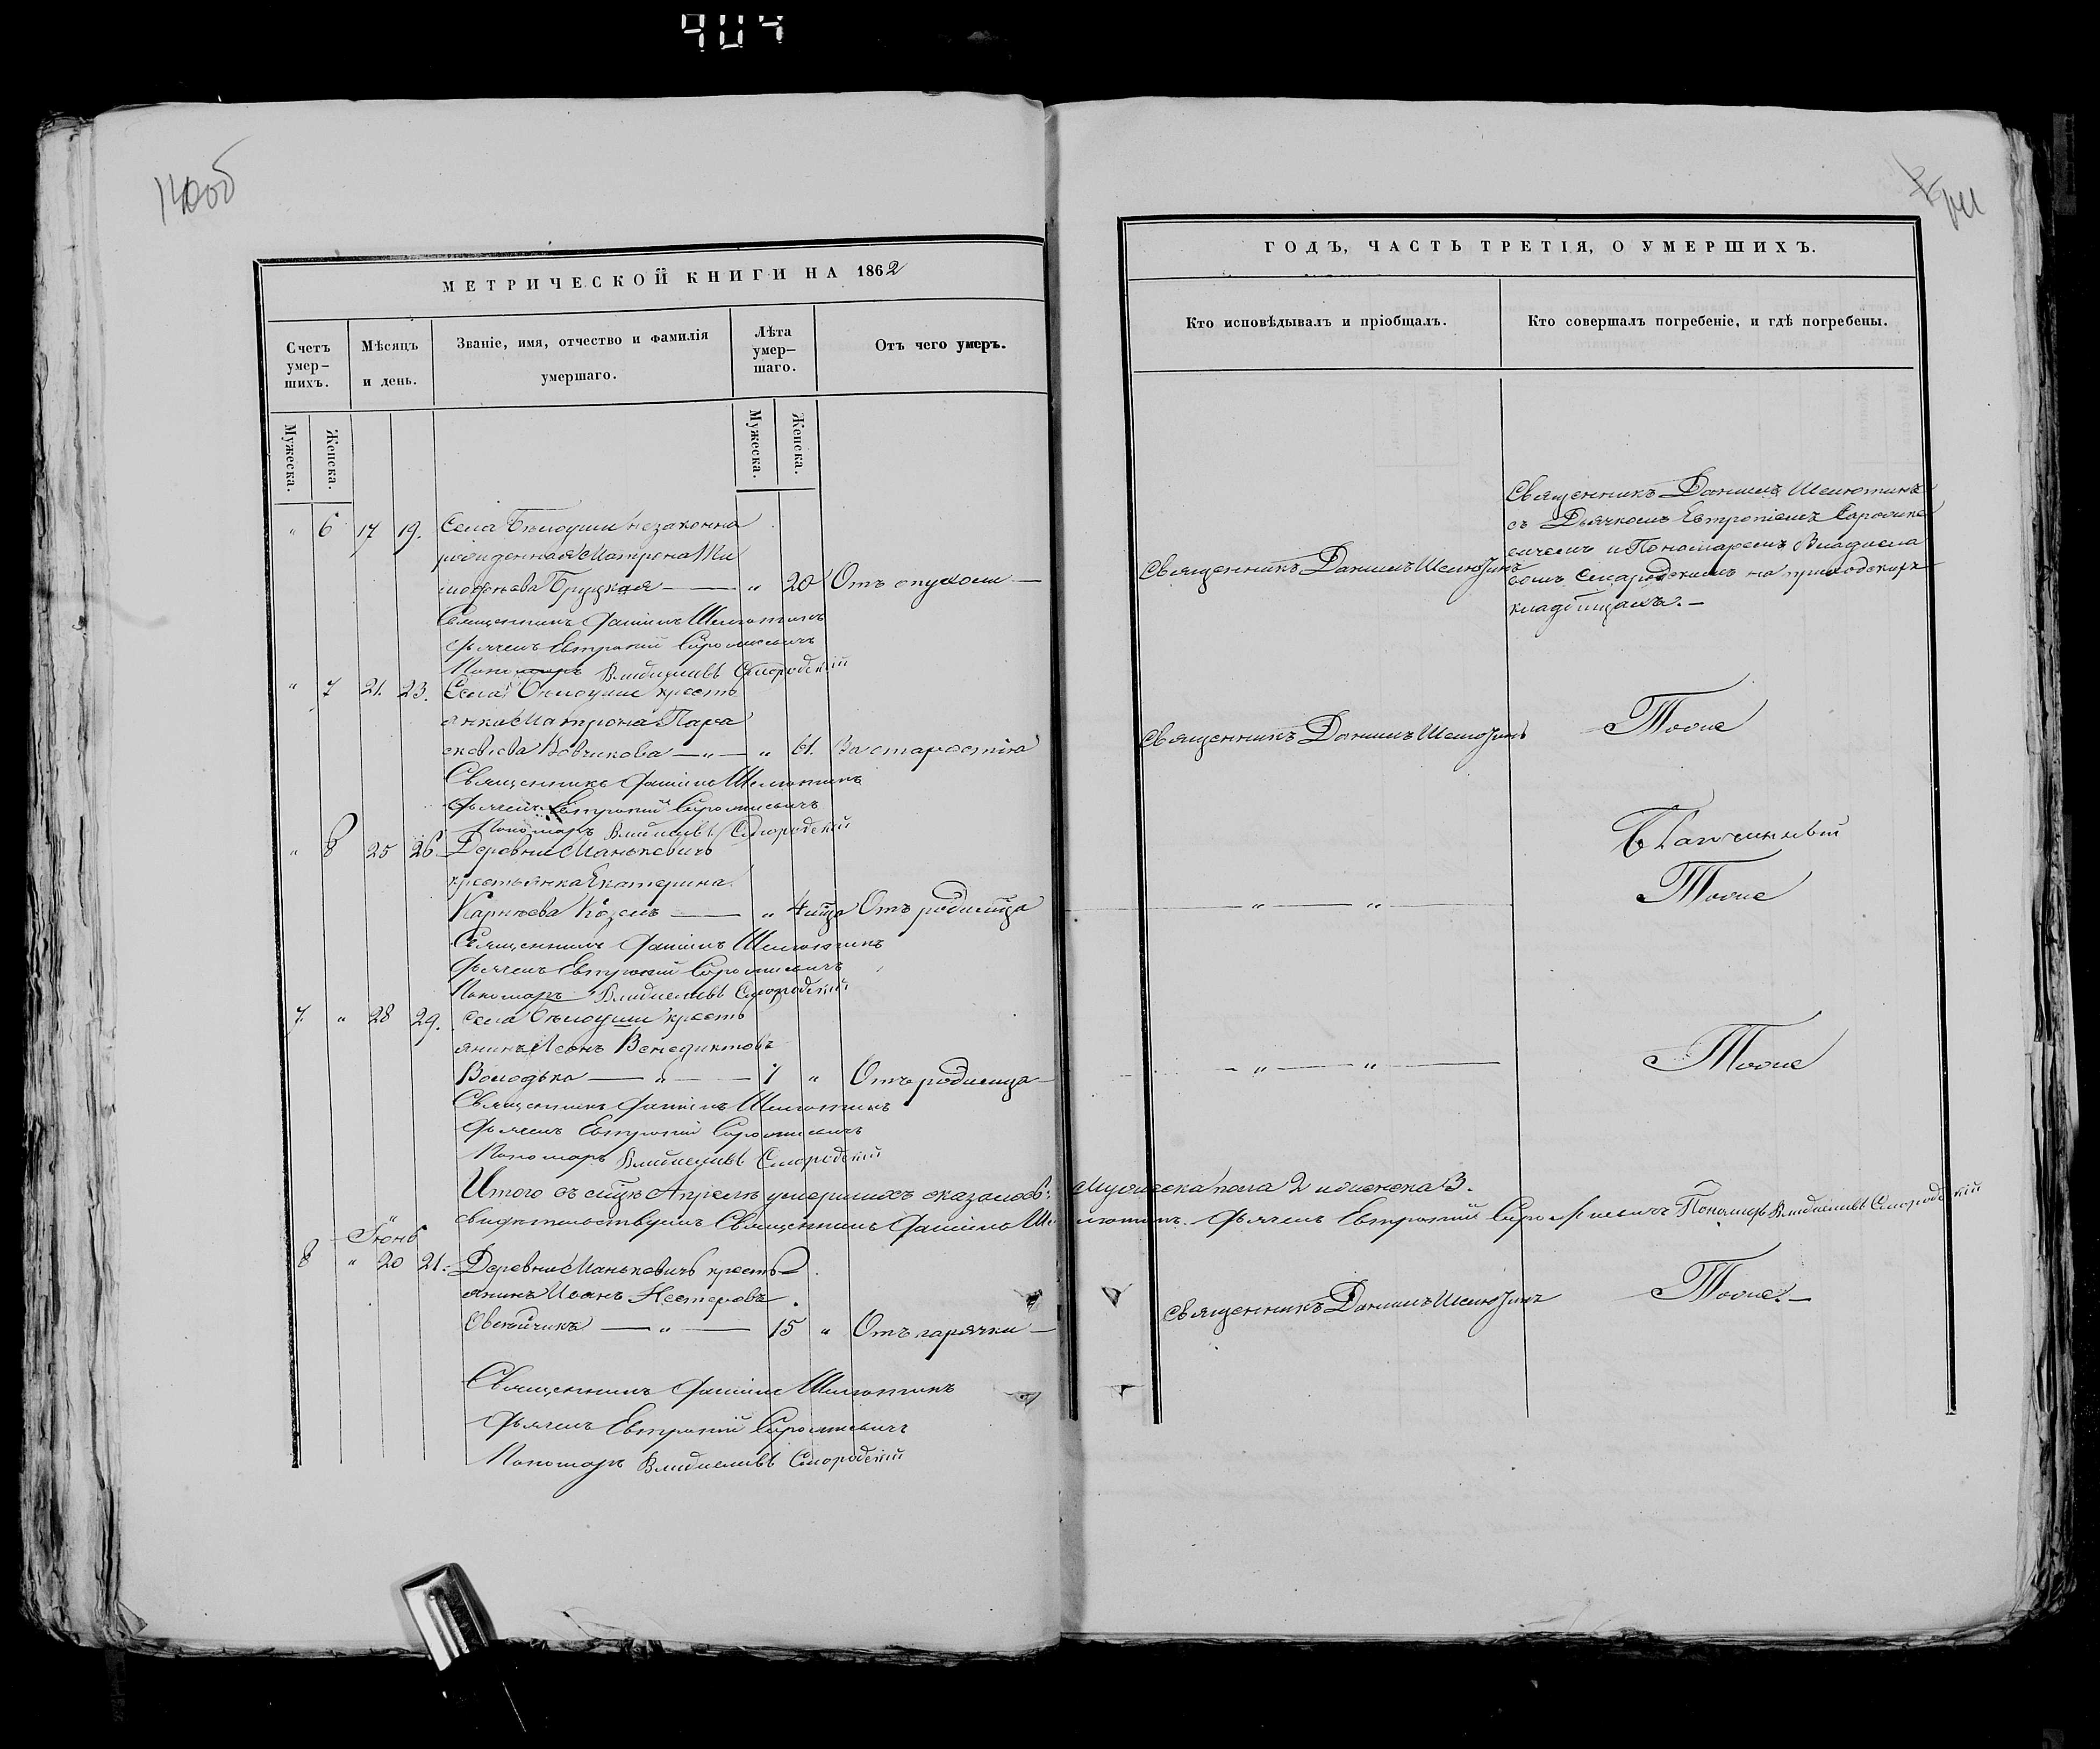 404
140об
141
МЕТРИЧЕСКОЙ КНИГИ НА 1862
Счетъ умер-шихъ.
Мѣсяцъ и день.
Званіе, имя, отчество и фамилія умершаго.
Лѣта умер-шаго.
Отъ чего умеръ.
Мужеска.
Женска.
Мужеска.
Женска.
" 6 17 19. Села Бѣлоуши незаконно
рожденная Матрона Ти
мофеева Бруцкая — " 20 Отъ опухоли —
Священникъ Даніилъ Шелютинъ
Дьячекъ Евтропій Сиромкевичъ
Пономарь Владиславъ Смородскій
" 7 21. 23. Села Бѣлоуши кресть
янка Матрона Пара
скевіева Вовчикова — " — " 61. За старостію
Священникъ Даніилъ Шелютинъ
Дьячекъ Евтропій Сиромкевичъ
Пономарь Владиславъ Смородскій
" 8 25 26 Деревни Манькевичъ
крестьянка Екатерина
Карнѣева Козелъ — " 4 мѣца Отъ родимца
Священникъ Даніилъ Шелютинъ
Дьячекъ Евтропій Сиромкевичъ
Пономарь Владиславъ Смородскій
7. " 28 29. Села Бѣлоуши кресть
янинъ Леонъ Венедиктовъ
Володько — " — 1 " Отъ родимца —
Священникъ Даніилъ Шелютинъ
Дьячекъ Евтропій Сиромкевичъ
Пономарь Владиславъ Смородскій
Итого въ мцѣ Апрелѣ умершихъ оказалось: мужеска пола 2 и женска 3.
свидѣтельствуемъ Священникъ Даніилъ Шелютинъ. Дьячекъ Евтропій Сиромкевичъ Пономарь Владиславъ Смородскій
Іюнь
8 " 20 21. Деревни Манькевичъ кресть
янинъ Иванъ Нестеровъ
Овсѣйчикъ — " — 15 " Отъ гарячки —
Священникъ Даніилъ Шелютинъ
Дьячекъ Евтропій Сиромкевичъ
Пономарь Владиславъ Смородскій
ГОДЪ, ЧАСТЬ ТРЕТІЯ, О УМЕРШИХЪ.
Кто исповѣдывалъ и пріобщалъ.
Кто совершалъ погребеніе, и гдѣ погребены.
Священникъ Даніилъ Шелютинъ
Священникъ Даніилъ Шелютинъ
съ Дьячкомъ Евтропіемъ Сиромке
вичемъ и Пономаремъ Владисла
вомъ Смародскимъ на приходскихъ
кладбищахъ. —
Священникъ Даніилъ Шелютинъ
Тоже
— " — " —
Тоже
— " — " —
Тоже
Священникъ Даніилъ Шелютинъ
Тоже. —